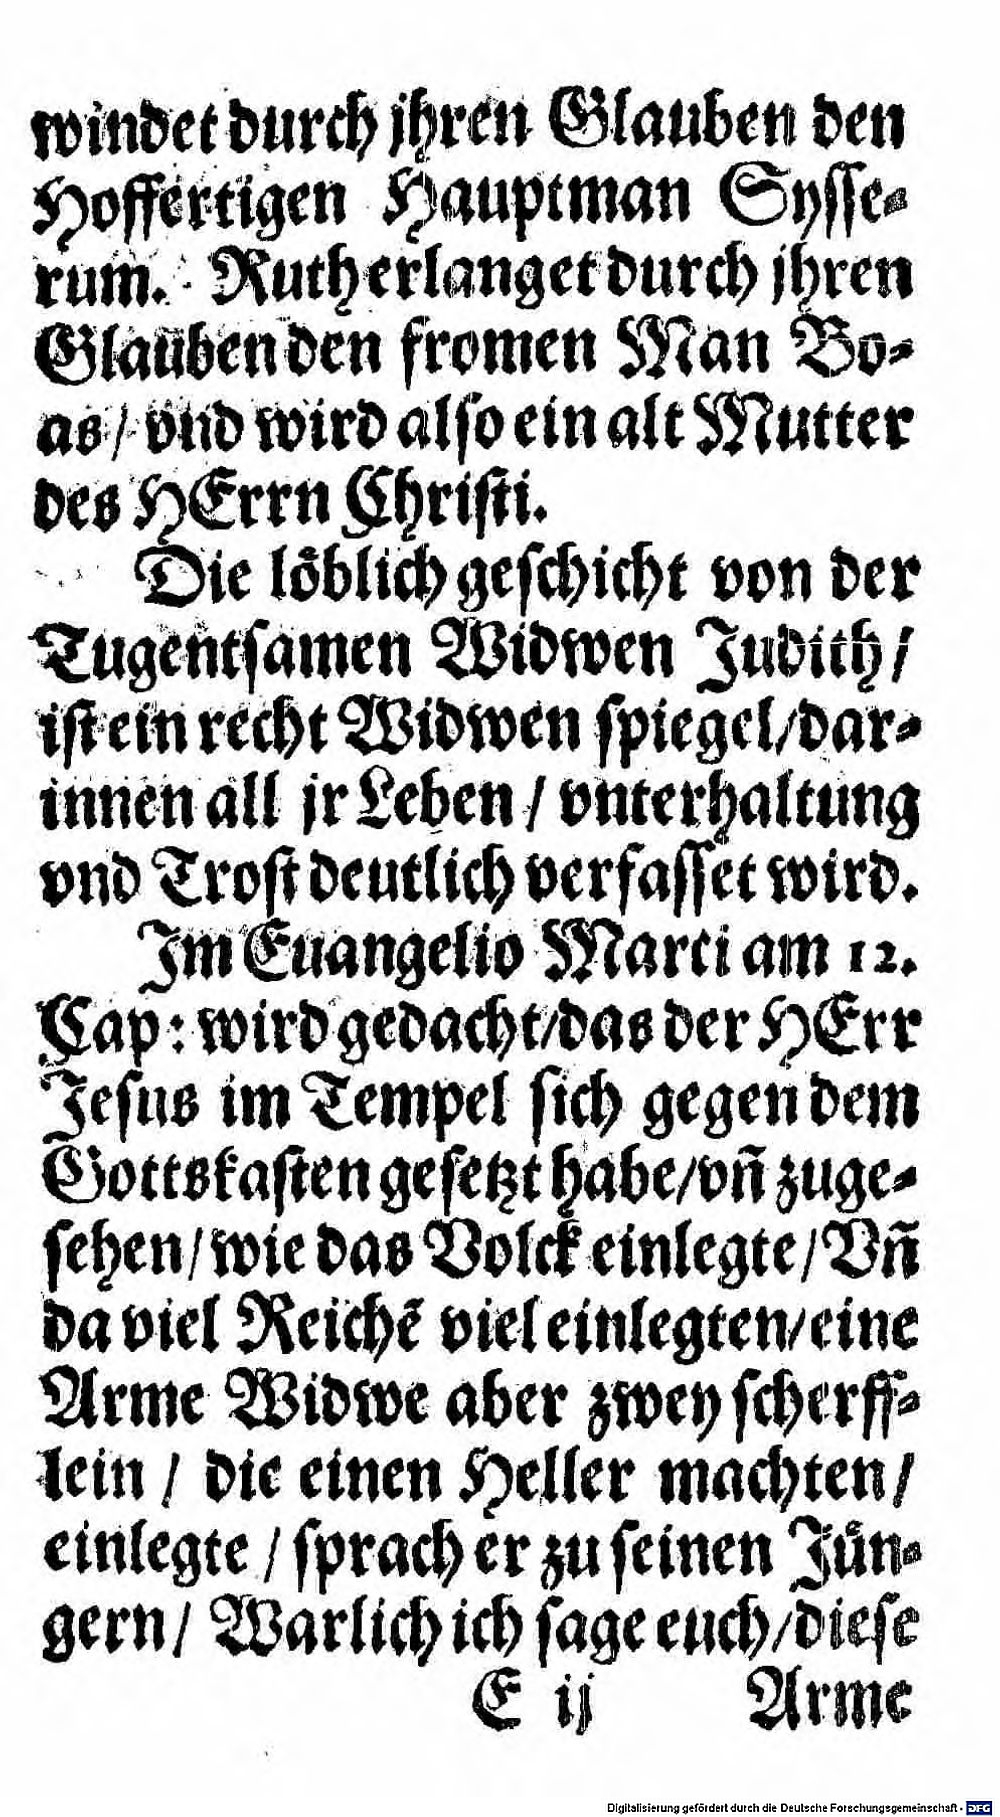 windet durch jhren Glauben den
Hoffertigen Hauptman Sysse-
rum. Ruth erlanget durch jhren
Glauben den fromen Man Bo-
as / vnd wird also ein alt Mutter
des HErrn Christi.
Die loͤblich geschicht von der
Tugentsamen Widwen Judith /
ist ein recht Widwen spiegel / dar-
innen all jr Leben / vnterhaltung
vnd Trost deutlich verfasset wird.
Im Euangelio Marci am 12.
Cap: wird gedacht / das der HErr
Jesus im Tempel sich gegen dem
Gottskasten gesetzt habe / vñ zuge-
sehen / wie das Volck einlegte / Vñ
da viel Reichẽ viel einlegten / eine
Arme Widwe aber zwey scherff-
lein / die einen Heller machten /
einlegte / sprach er zu seinen Juͤn-
gern / Warlich ich sage euch / diese
E ij Arme
Digitalisierung gefördert durch die Deutsche Forschungsgemeinschaft - DFG